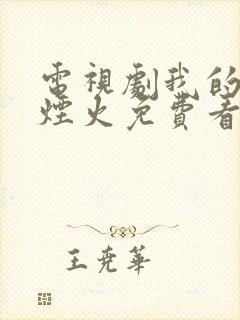 電視劇我的
煙火免費看
王堯華